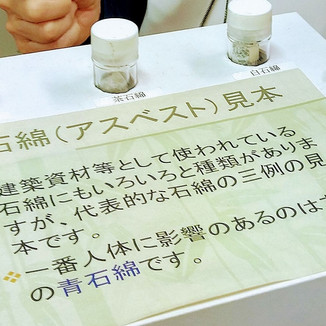 茶石綿
白石綿
石綿(アスベスト)見本
建築資材等として使われている
石綿にもいろいろと種類がありま
すが、代表的な石綿の三例の見
本です。
一番人体に影響のあるのは
の青石綿です。